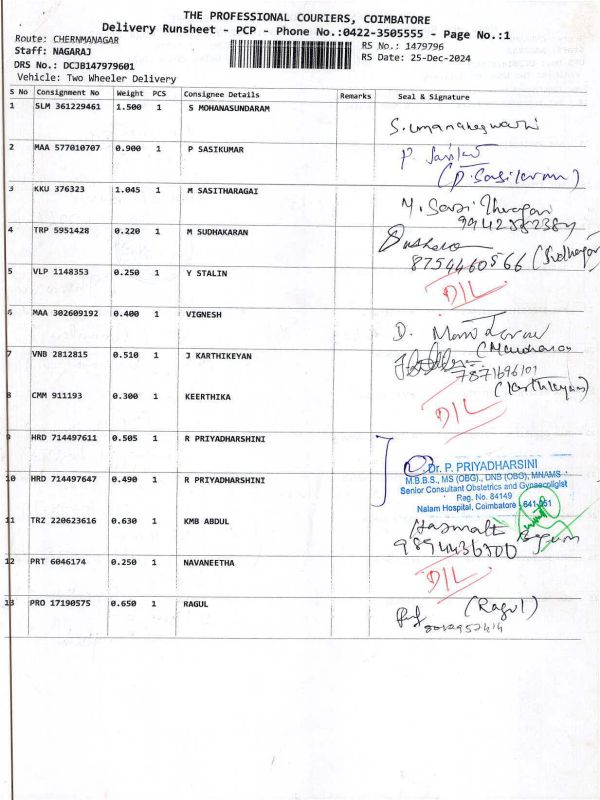 THE PROFESSIONAL COURIERS, COIMBATORE
Delivery Runsheet - PCP - Phone No.:0422-3505555 - Page No.:1
Route: CHERNMANAGAR
Staff: NAGARAJ
DRS No.: DCJB147979601
Vehicle: Two Wheeler Delivery
RS No.: 1479796
RS Date: 25-Dec-2024
S No Consignment No Weight PCS Consignee Details Remarks Seal & Signature
1 SLM 361229461 1.500 1 S MOHANASUNDARAM
S.umamaheswari
2 MAA 577010707 0.900 1 P SASIKUMAR
P. Sasikumar
(P.Sasikumar)
3 KKU 376323 1.045 1 M SASITHARAGAI
M. Sasi Tharagai
9942582384
4 TRP 5951428 0.220 1 M SUDHAKARAN
8754460566 (Sudhagar)
5 VLP 1148353 0.250 1 Y STALIN
D/L
6 MAA 302609192 0.400 1 VIGNESH
D. Manoharan
(Manoharan
7 VNB 2812815 0.510 1 J KARTHIKEYAN
7871696101
(Karthikeyan)
8 CMM 911193 0.300 1 KEERTHIKA
D/L
9 HRD 714497611 0.505 1 R PRIYADHARSHINI
10 HRD 714497647 0.490 1 R PRIYADHARSHINI
Dr. P. PRIYADHARSINI
M.B.B.S., MS (OBG)., DNB (OBG), MNAMS
Senior Consultant Obstetrics and Gynaecoligist
Reg. No. 84149
Nalam Hospital, Coimbatore - 641 061
11 TRZ 220623616 0.630 1 KMB ABDUL
Hasmath Begum
9894436700
12 PRT 6046174 0.250 1 NAVANEETHA
D/L
13 PRO 17190575 0.650 1 RAGUL
(Ragul)